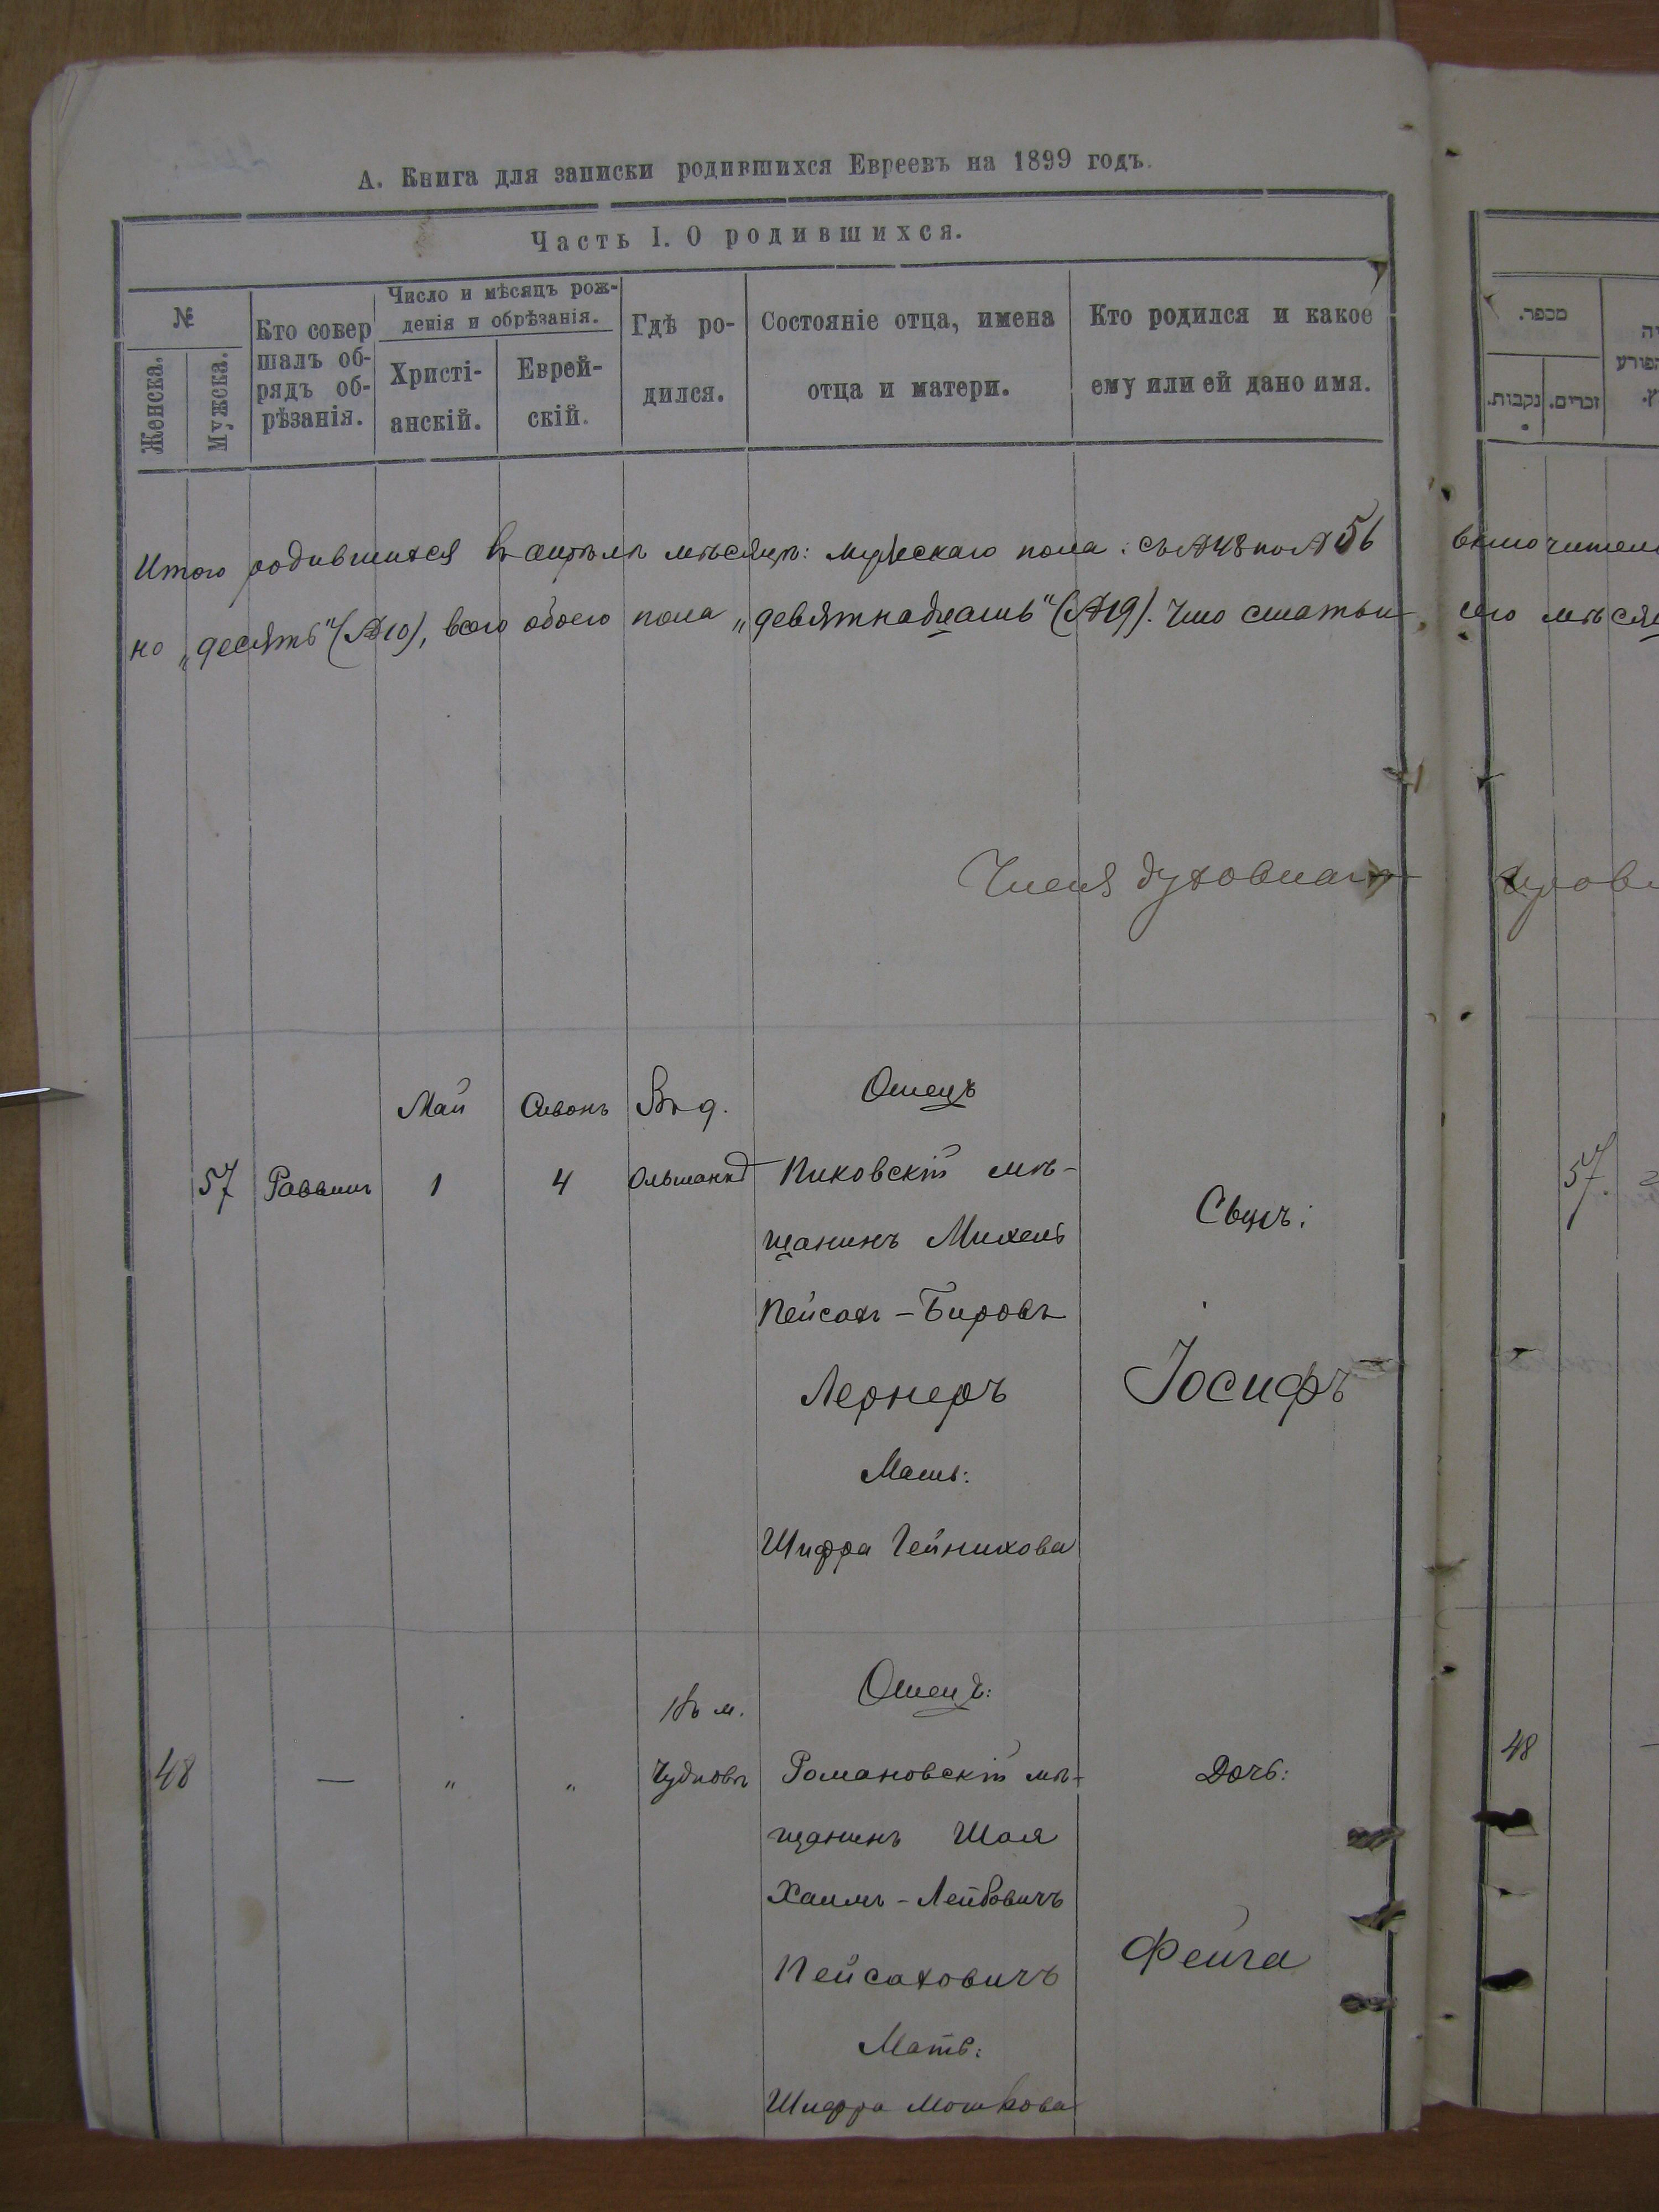 А. Книга для записки родившихся Евреевъ на 1899 годъ.
Часть I. О родившихся.
№
Женска.
Мужска.
Кто совер
шалъ об-
рядъ об-
рѣзанія.
Число и мѣсяцъ рож-
денія и обрѣзанія.
Христі-
анскій.
Еврей-
скій.
Гдѣ ро-
дился.
Состояніе отца, имена
отца и матери.
Кто родился и какое
ему или ей дано имя.
Итого родившихся въ апрѣлѣ мѣсяцѣ: мужескаго пола: съ №48 по №56
но „десять“ (№10), всего обоего пола „девятнадцать“ (№19). Что статьи
Члены духовнаго
57
Раввинъ
Май
1
Сивонъ
4
Въ д.
Ольшанкѣ
Отецъ
Пиковскій мѣ-
щанинъ Михель
Пейсахъ-Беровъ
Лернеръ
Мать:
Шифра Гейнихова
Сынъ:
Іосифъ
48
—
„
„
Въ м.
Чудновѣ
Отецъ:
Романовскій мѣ-
щанинъ Шая
Хаимъ-Лейбовичъ
Пейсаховичъ
Мать:
Шифра Мошкова
Дочь:
Фейга
מספר.
נקבות.
זכרים.
сего мѣсяц
57.
48